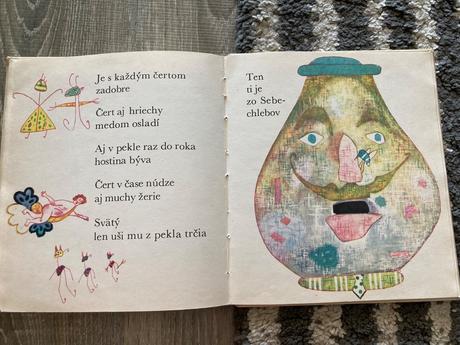 Je s každým čertom
zadobre
Čert aj hriechy
medom osladí
Aj v pekle raz do roka
hostina býva
Čert v čase núdze
aj muchy žerie
Svätý
len uši mu z pekla trčia
Ten
ti je
zo Sebe-
chlebov